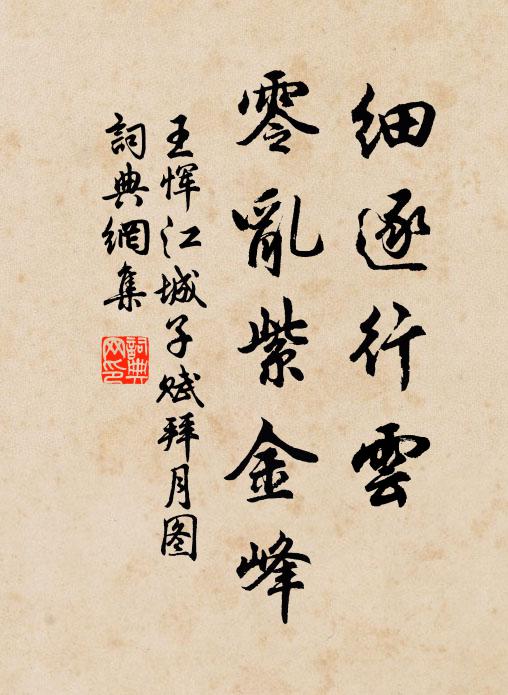 细逐行雲
零亂紫金峰
王恽江城子赋拜月图
詞典網集
詞典网印